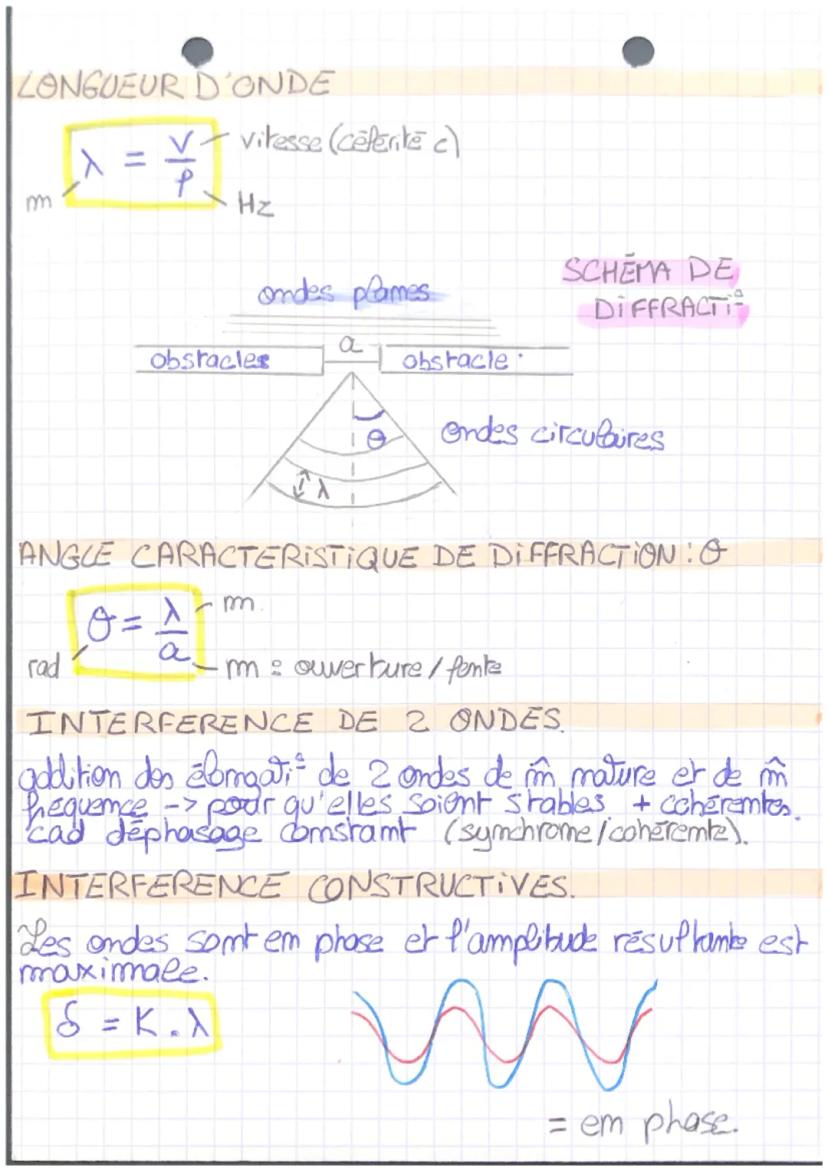 LONGUEUR D'ONDE
λ = v/f
vitesse (célérité c)
m
Hz
SCHÉMA DE
DIFFRACTI°
ondes planes
a
obstacles
obstacle
θ
ondes circulaires
λ
ANGLE CARACTERISTIQUE DE DIFFRACTION : θ
θ = λ/a
m
rad
m = ouverture / fente
INTERFERENCE DE 2 ONDES.
addition des élongati° de 2 ondes de m̂ nature et de m̂
fréquence -> pour qu'elles soient stables + cohérentes.
cad déphasage constant (synchrone/cohérente).
INTERFERENCE CONSTRUCTIVES.
Les ondes sont en phase et l'amplitude résultante est
maximale.
δ = K . λ
= en phase.